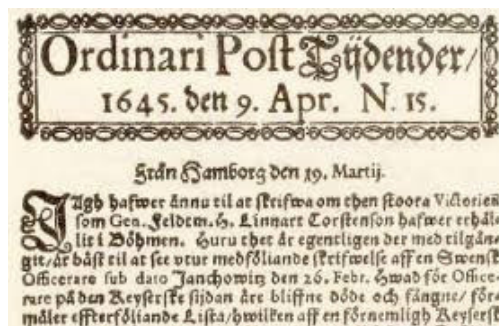 Ordinari Post Tijdender/
1645. den 9. Apr. N. 15.
Från Hamborg den 19. Martij.
JAgh hafwer ännu til at skrifwa om then stoora Victorien
som Gen. Feldtm. H. Linnart Torstenson hafwer erhål-
lit i Böhmen. Huru thet är egentligen der med tilgån-
git/ är bäst til at see vtur medföliande skrifwelse aff en Swensk
Officerare sub dato Janchowitz den 26. Febr. Hwad för Office-
rare på den Keyserske sijdan äre bliffne döde och fångne/ för-
mäler effterföliande Lista/ hwilken aff en förnemligh Keysersk